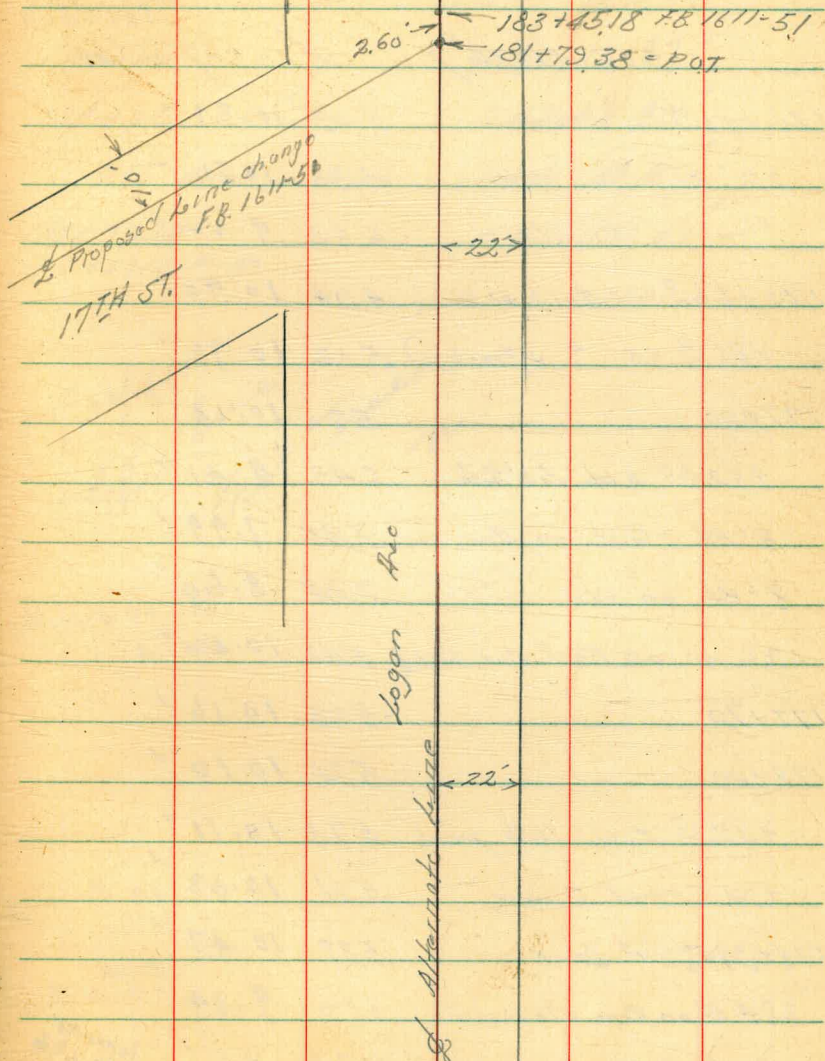 183+45.18 F.B. 1611-51
2.60'
181+79.38 = P.O.T.
10'
℄ Proposed Line change
F.B. 1611-51
17TH ST.
22'
Logan Ave
22'
℄ Alternate Line